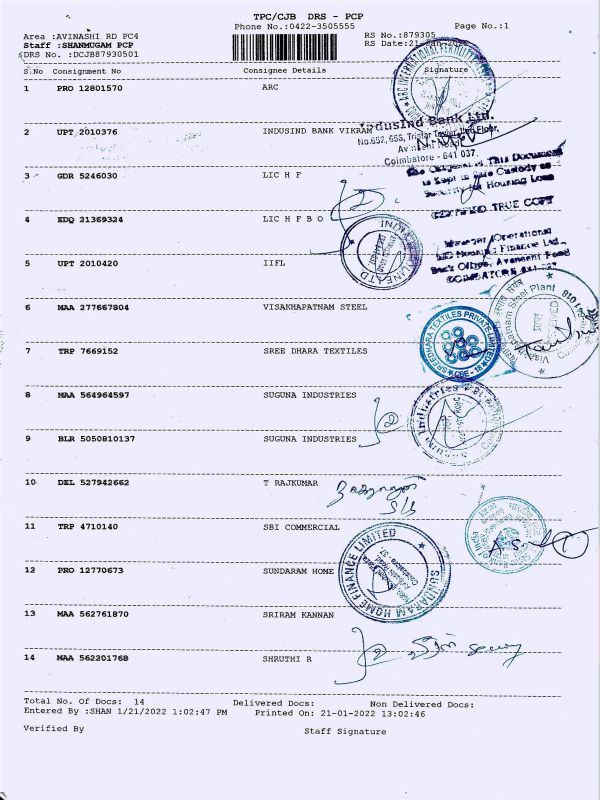 TPC/CJB DRS - PCP
Phone No.:0422-3505555 Page No.:1
Area :AVINASHI RD PC4
Staff :SHANMUGAM PCP
DRS No. :DCJB87930501
RS No.:879305
RS Date:21-Jan-2022
S.No Consignment No Consignee Details Signature
1 PRO 12801570 ARC
2 UPT 2010376 INDUSIND BANK VIKRAM
IndusInd Bank Ltd.
Avinashi Road
Coimbatore - 641 037.
3 GDR 5246030 LIC H F
The Original of This Document
is Kept in Safe Custody as
Security for Housing Loan
CERTIFIED TRUE COPY
4 EDQ 21369324 LIC H F B O
Manager Operational
LIC Housing Finance Ltd.,
Back Office, Avanashi Road
COIMBATORE
5 UPT 2010420 IIFL
6 MAA 277667804 VISAKHAPATNAM STEEL
Visakhapatnam Steel Plant
7 TRP 7669152 SREE DHARA TEXTILES
SREEDHARA TEXTILES PRIVATE LIMITED
CBE - 18
8 MAA 564964597 SUGUNA INDUSTRIES
Suguna Industries
9 BLR 5050810137 SUGUNA INDUSTRIES
10 DEL 527942662 T RAJKUMAR
11 TRP 4710140 SBI COMMERCIAL
A.S
12 PRO 12770673 SUNDARAM HOME
SUNDARAM HOME FINANCE LIMITED
13 MAA 562761870 SRIRAM KANNAN
14 MAA 562201768 SHRUTHI R
Total No. Of Docs: 14 Delivered Docs: Non Delivered Docs:
Entered By :SHAN 1/21/2022 1:02:47 PM Printed On: 21-01-2022 13:02:46
Verified By Staff Signature